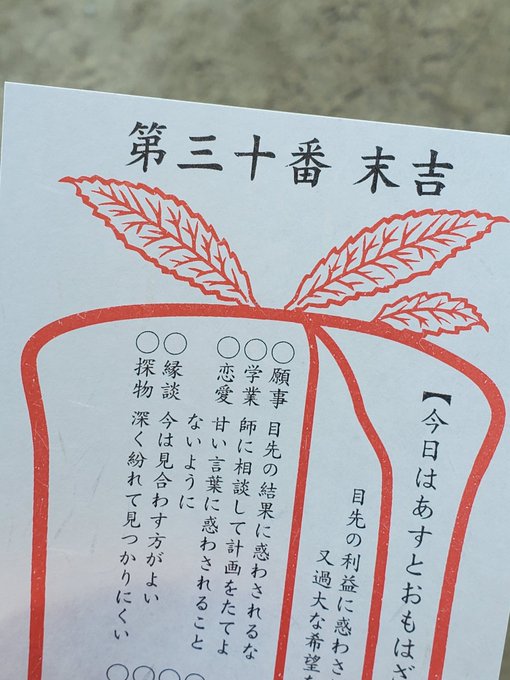 第三十番 末吉
【今日はあすとおもはざ
目先の利益に惑わさ
又過大な希望を
○願事 目先の結果に惑わされるな
○学業 師に相談して計画をたてよ
○恋愛 甘い言葉に惑わされること
ないように
○縁談 今は見合わす方がよい
○探物 深く紛れて見つかりにくい